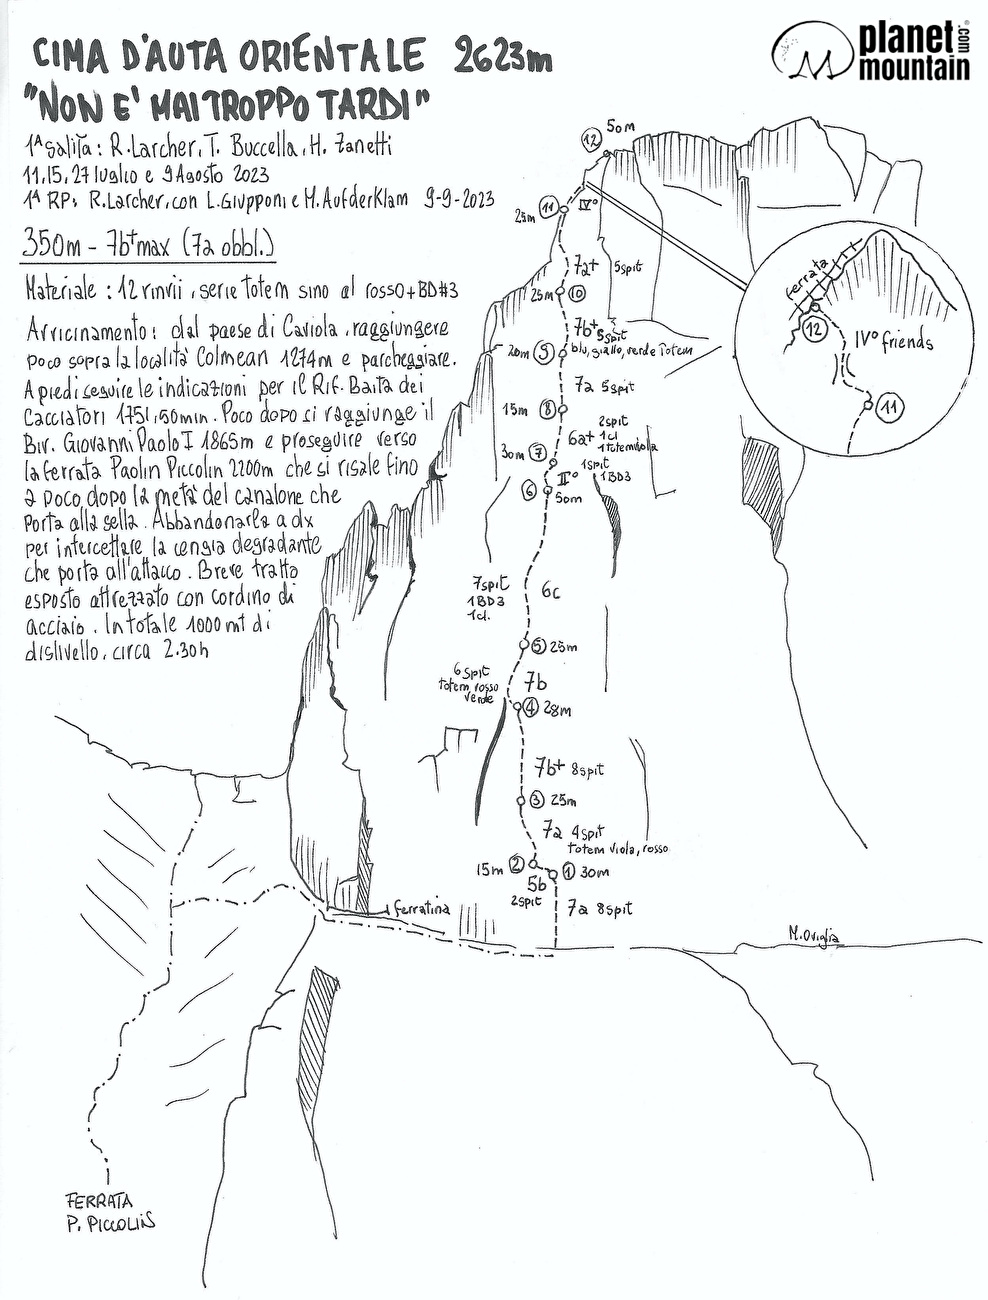 CIMA D'AUTA ORIENTALE 2623m
"NON E' MAI TROPPO TARDI"
planet
mountain
.com
1ª salita: R.Larcher, T. Buccella, H. Zanetti
11,15,27 luglio e 9 Agosto 2023
1ª RP: R.Larcher, con L.Giupponi e M.Aufderklam 9-9-2023
350m - 7b+max (7a obbl.)
Materiale: 12 rinvii, serie Totem sino al rosso+BD#3
Avvicinamento: dal paese di Caviola, raggiungere
poco sopra la località Colmean 1274m e parcheggiare.
A piedi seguire le indicazioni per il Rif. Baita dei
Cacciatori 1751, 50min. Poco dopo si raggiunge il
Biv. Giovanni Paolo I 1865m e proseguire verso
la ferrata Paolin Piccolin 2200m che si risale fino
a poco dopo la metà del canalone che
porta alla sella. Abbandonarla a dx
per intercettare la cengia degradante
che porta all'attacco. Breve tratto
esposto attrezzato con cordino di
acciaio. In totale 1000 mt di
dislivello, circa 2.30h
12 50m
IV°
25m 11
7a+ 5spit
25m 10
7b+ 5spit
blu, giallo, verde Totem
20m 9
7a 5spit
15m 8
2spit
6a+ 1cl
1totem viola
30m 7
1spit
II° 1BD3
6 50m
7spit
1BD3
1cl.
6c
5 25m
6spit
totem rosso
verde
7b
4 28m
7b+ 8spit
3 25m
7a 4spit
totem viola, rosso
15m 2
1 30m
5b
2spit
7a 8spit
ferrata
12
IV° friends
11
ferratina
M.Oviglia
FERRATA
P. PICCOLIS